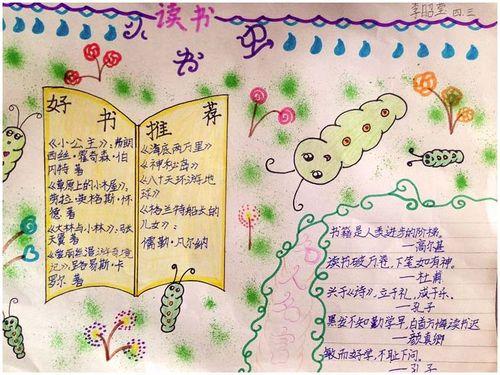 读书
小书虫
李昭莹 四.三
好书推荐
《小公主》,弗朗
西丝·霍奇森·伯
内特 著
《草原上的小木屋》,
劳拉·英格斯·怀
德 著
《大林与小林》,张
天翼 著
《爱丽丝漫游奇境
记》,路易斯·卡
罗尔 著
《海底两万里》
《神秘岛》
《八十天环游地
球》
《格兰特船长的
儿女》:
儒勒·凡尔纳
名人名言
书籍是人类进步的阶梯。
—高尔基
读书破万卷,下笔如有神。
—杜甫
兴于《诗》,立于礼,成于乐。
—孔子
黑发不知勤学早,白首方悔读书迟
—颜真卿
敏而好学,不耻下问。
—孔子